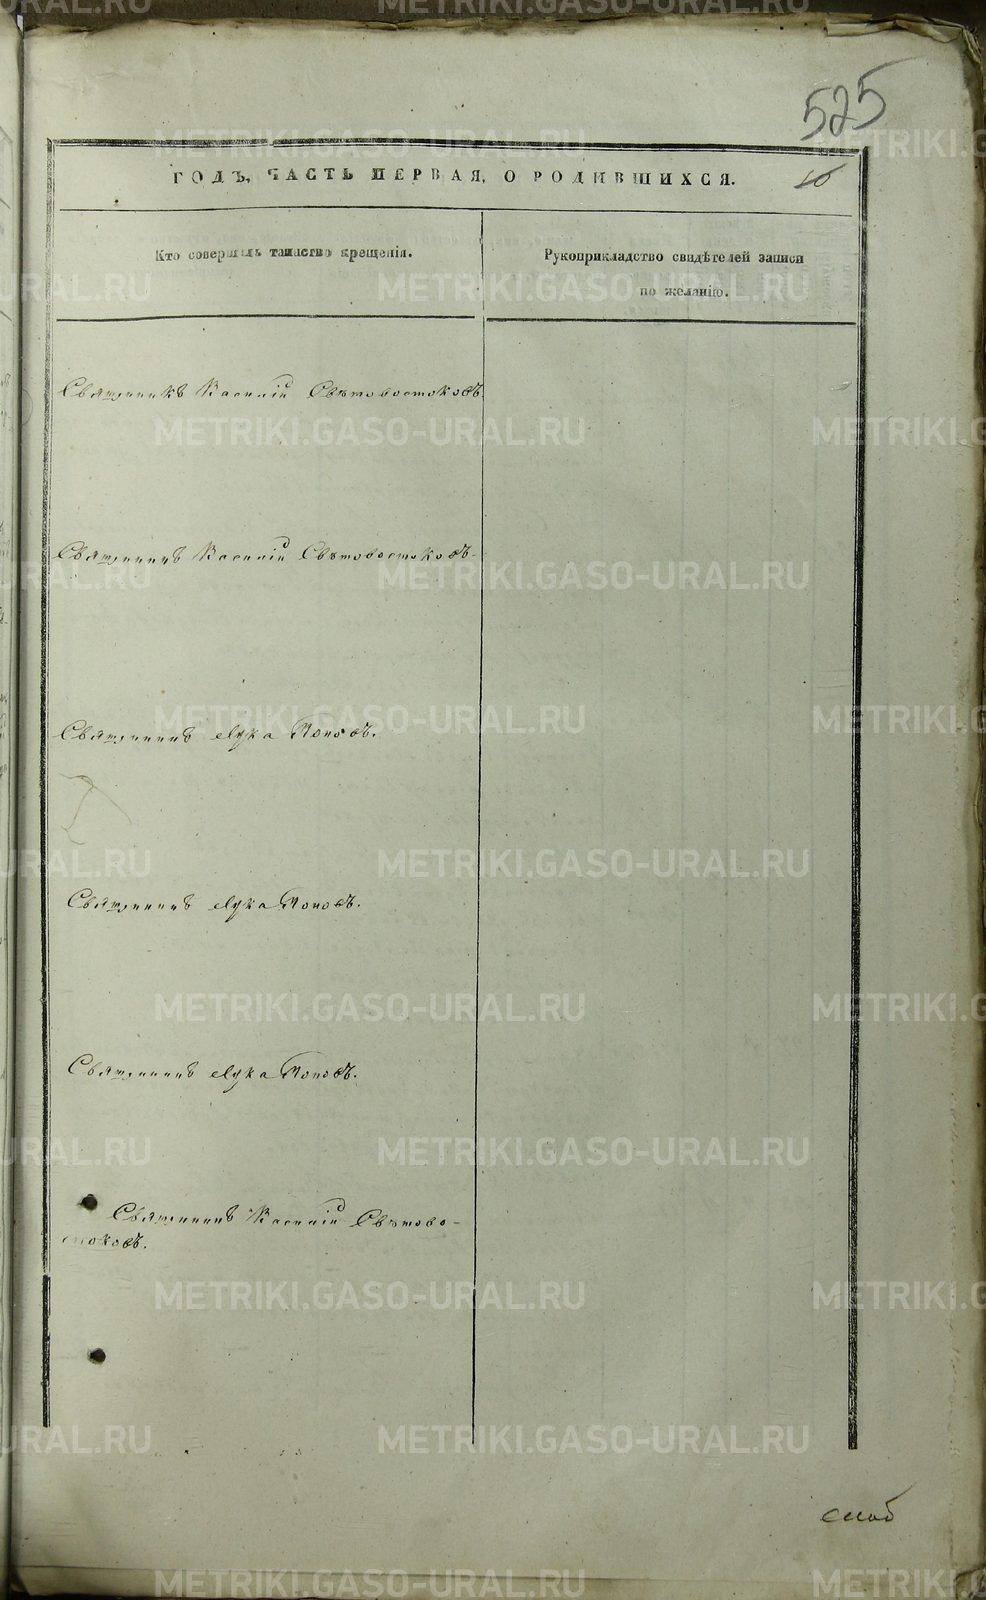 525
ГОДЪ, ЧАСТЬ ПЕРВАЯ, О РОДИВШИХСЯ.
10
Кто совершалъ таинство крещенія.
Рукоприкладство свидѣтелей записи
по желанію.
Священникъ Василій Свѣтовостоковъ
Священникъ Василій Свѣтовостоковъ.
Священникъ Лука Поповъ.
Священникъ Лука Поповъ.
Священникъ Лука Поповъ.
Священникъ Василій Свѣтово-
стоковъ.
METRIKI.GASO-URAL.RU